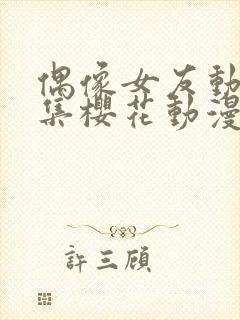 偶像女友動
集櫻花動漫
許三顧